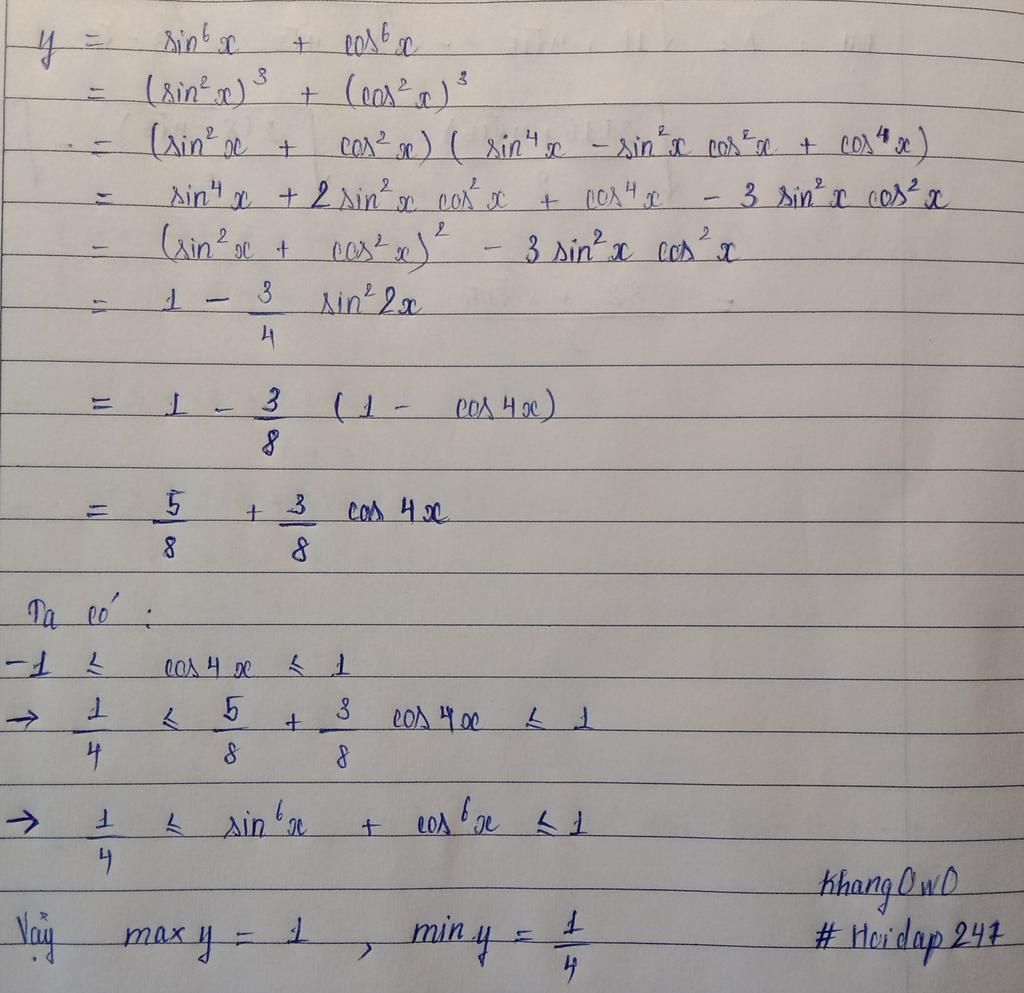 y = sin⁶x + cos⁶x
= (sin²x)³ + (cos²x)³
= (sin²x + cos²x)(sin⁴x - sin²x cos²x + cos⁴x)
= sin⁴x + 2 sin²x cos²x + cos⁴x - 3 sin²x cos²x
= (sin²x + cos²x)² - 3 sin²x cos²x
= 1 - 3/4 sin²2x
= 1 - 3/8 (1 - cos4x)
= 5/8 + 3/8 cos 4x
Ta có :
-1 ≤ cos4x ≤ 1
→ 1/4 ≤ 5/8 + 3/8 cos4x ≤ 1
→ 1/4 ≤ sin⁶x + cos⁶x ≤ 1
Vậy max y = 1 , min y = 1/4
Khang0w0
# Hoidap247